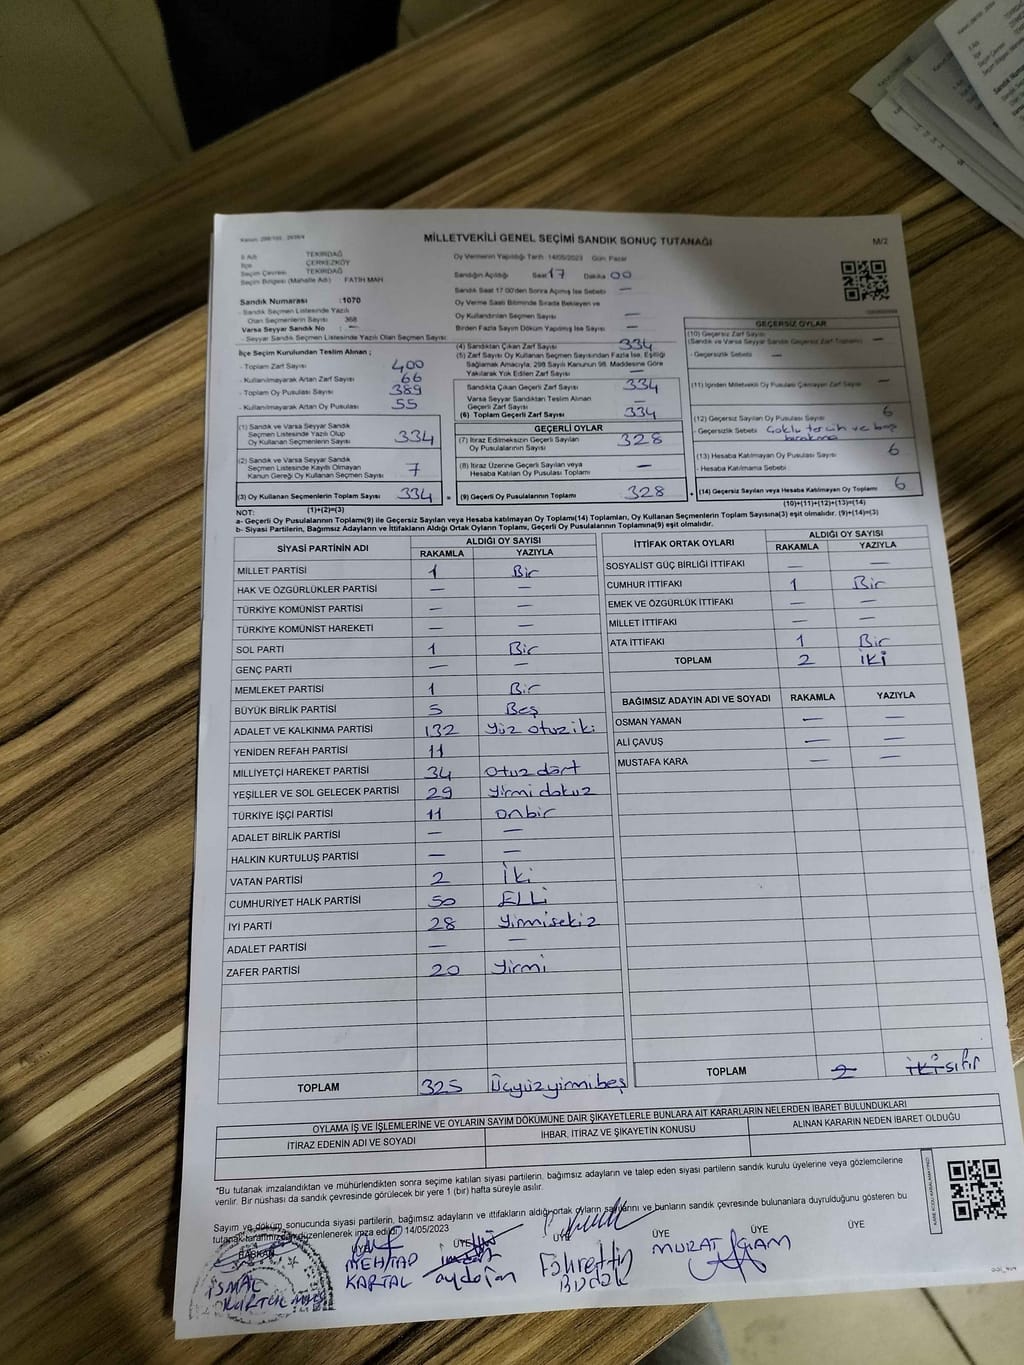 MİLLETVEKİLİ GENEL SEÇİMİ SANDIK SONUÇ TUTANAĞI
M/2
İl Adı TEKİRDAĞ
İlçe ÇERKEZKÖY
Seçim Çevresi TEKİRDAĞ
Seçim Bölgesi (Mahalle Adı) FATİH MAH
Oy Vermenin Yapıldığı Tarih 14/05/2023 Gün: Pazar
Sandığın Açıldığı Saat 17 Dakika 00
Sandık Saat 17:00'den Sonra Açılmış İse Sebebi —
Oy Verme Saati Bitiminde Sırada Bekleyen ve
Oy Kullandırılan Seçmen Sayısı —
Birden Fazla Sayım Döküm Yapılmış İse Sayısı —
Sandık Numarası : 1070
- Sandık Seçmen Listesinde Yazılı
Olan Seçmenlerin Sayısı 368
Varsa Seyyar Sandık No : —
- Seyyar Sandık Seçmen Listesinde Yazılı Olan Seçmen Sayısı:
İlçe Seçim Kurulundan Teslim Alınan ;
- Toplam Zarf Sayısı 400
- Kullanılmayarak Artan Zarf Sayısı 66
- Toplam Oy Pusulası Sayısı 389
- Kullanılmayarak Artan Oy Pusulası 55
(1) Sandık ve Varsa Seyyar Sandık
Seçmen Listesinde Yazılı Olup
Oy Kullanan Seçmenlerin Sayısı 334
(2) Sandık ve Varsa Seyyar Sandık
Seçmen Listesinde Kayıtlı Olmayan
Kanun Gereği Oy Kullanan Seçmen Sayısı 7
(3) Oy Kullanan Seçmenlerin Toplam Sayısı 334
(1)+(2)=(3)
(4) Sandıktan Çıkan Zarf Sayısı 334
(5) Zarf Sayısı Oy Kullanan Seçmen Sayısından Fazla İse, Eşitliği
Sağlamak Amacıyla, 298 Sayılı Kanunun 98. Maddesine Göre
Yakılarak Yok Edilen Zarf Sayısı —
Sandıkta Çıkan Geçerli Zarf Sayısı 334
Varsa Seyyar Sandıktan Teslim Alınan
Geçerli Zarf Sayısı —
(6) Toplam Geçerli Zarf Sayısı 334
GEÇERLİ OYLAR
(7) İtiraz Edilmeksizin Geçerli Sayılan
Oy Pusulalarının Sayısı 328
(8) İtiraz Üzerine Geçerli Sayılan veya
Hesaba Katılan Oy Pusulası Toplamı —
= (9) Geçerli Oy Pusulalarının Toplamı 328
GEÇERSİZ OYLAR
(10) Geçersiz Zarf Sayısı
(Sandık ve Varsa Seyyar Sandık Geçersiz Zarf Toplamı) —
- Geçersizlik Sebebi : —
(11) İçinden Milletvekili Oy Pusulası Çıkmayan Zarf Sayısı —
(12) Geçersiz Sayılan Oy Pusulası Sayısı 6
- Geçersizlik Sebebi : Çoklu tercih ve boş
bırakma
(13) Hesaba Katılmayan Oy Pusulası Sayısı 6
- Hesaba Katılmama Sebebi :
+ (14) Geçersiz Sayılan veya Hesaba Katılmayan Oy Toplamı 6
(10)+(11)+(12)+(13)=(14)
NOT:
a- Geçerli Oy Pusulalarının Toplamı(9) ile Geçersiz Sayılan veya Hesaba katılmayan Oy Toplamı(14) Toplamları, Oy Kullanan Seçmenlerin Toplam Sayısına(3) eşit olmalıdır. (9)+(14)=(3)
b- Siyasi Partilerin, Bağımsız Adayların ve İttifakların Aldığı Ortak Oyların Toplamı, Geçerli Oy Pusulalarının Toplamına(9) eşit olmalıdır.
SİYASİ PARTİNİN ADI ALDIĞI OY SAYISI
RAKAMLA YAZIYLA
MİLLET PARTİSİ 1 Bir
HAK VE ÖZGÜRLÜKLER PARTİSİ — —
TÜRKİYE KOMÜNİST PARTİSİ — —
TÜRKİYE KOMÜNİST HAREKETİ — —
SOL PARTİ 1 Bir
GENÇ PARTİ — —
MEMLEKET PARTİSİ 1 Bir
BÜYÜK BİRLİK PARTİSİ 5 Beş
ADALET VE KALKINMA PARTİSİ 132 Yüz otuz iki
YENİDEN REFAH PARTİSİ 11
MİLLİYETÇİ HAREKET PARTİSİ 34 Otuz dört
YEŞİLLER VE SOL GELECEK PARTİSİ 29 Yirmi dokuz
TÜRKİYE İŞÇİ PARTİSİ 11 Onbir
ADALET BİRLİK PARTİSİ — —
HALKIN KURTULUŞ PARTİSİ — —
VATAN PARTİSİ 2 İki
CUMHURİYET HALK PARTİSİ 50 ELLİ
İYİ PARTİ 28 Yirmisekiz
ADALET PARTİSİ — —
ZAFER PARTİSİ 20 Yirmi
TOPLAM 325 Üçyüzyirmibeş
İTTİFAK ORTAK OYLARI ALDIĞI OY SAYISI
RAKAMLA YAZIYLA
SOSYALİST GÜÇ BİRLİĞİ İTTİFAKI — —
CUMHUR İTTİFAKI 1 Bir
EMEK VE ÖZGÜRLÜK İTTİFAKI — —
MİLLET İTTİFAKI — —
ATA İTTİFAKI 1 Bir
TOPLAM 2 İki
BAĞIMSIZ ADAYIN ADI VE SOYADI RAKAMLA YAZIYLA
OSMAN YAMAN — —
ALİ ÇAVUŞ — —
MUSTAFA KARA — —
TOPLAM 2 İki sıfır
OYLAMA İŞ VE İŞLEMLERİNE VE OYLARIN SAYIM DÖKÜMÜNE DAİR ŞİKAYETLERLE BUNLARA AİT KARARLARIN NELERDEN İBARET BULUNDUKLARI
İTİRAZ EDENİN ADI VE SOYADI İHBAR, İTİRAZ VE ŞİKAYETİN KONUSU ALINAN KARARIN NEDEN İBARET OLDUĞU
*Bu tutanak imzalandıktan ve mühürlendikten sonra seçime katılan siyasi partilerin, bağımsız adayların ve talep eden siyasi partilerin sandık kurulu üyelerine veya gözlemcilerine
verilir. Bir nüshası da sandık çevresinde görülecek bir yere 1 (bir) hafta süreyle asılır.
Sayım ve döküm sonucunda siyasi partilerin, bağımsız adayların ve ittifakların aldığı ortak oyların sayılarını ve bunların sandık çevresinde bulunanlara duyrulduğunu gösteren bu
tutanak tarafımızdan düzenlenerek imza edildi. 14/05/2023
BAŞKAN ÜYE ÜYE ÜYE ÜYE ÜYE
İSMAİL
MEHTAP
KARTAL
aydoğan
Fahrettin
Budak
MURAT